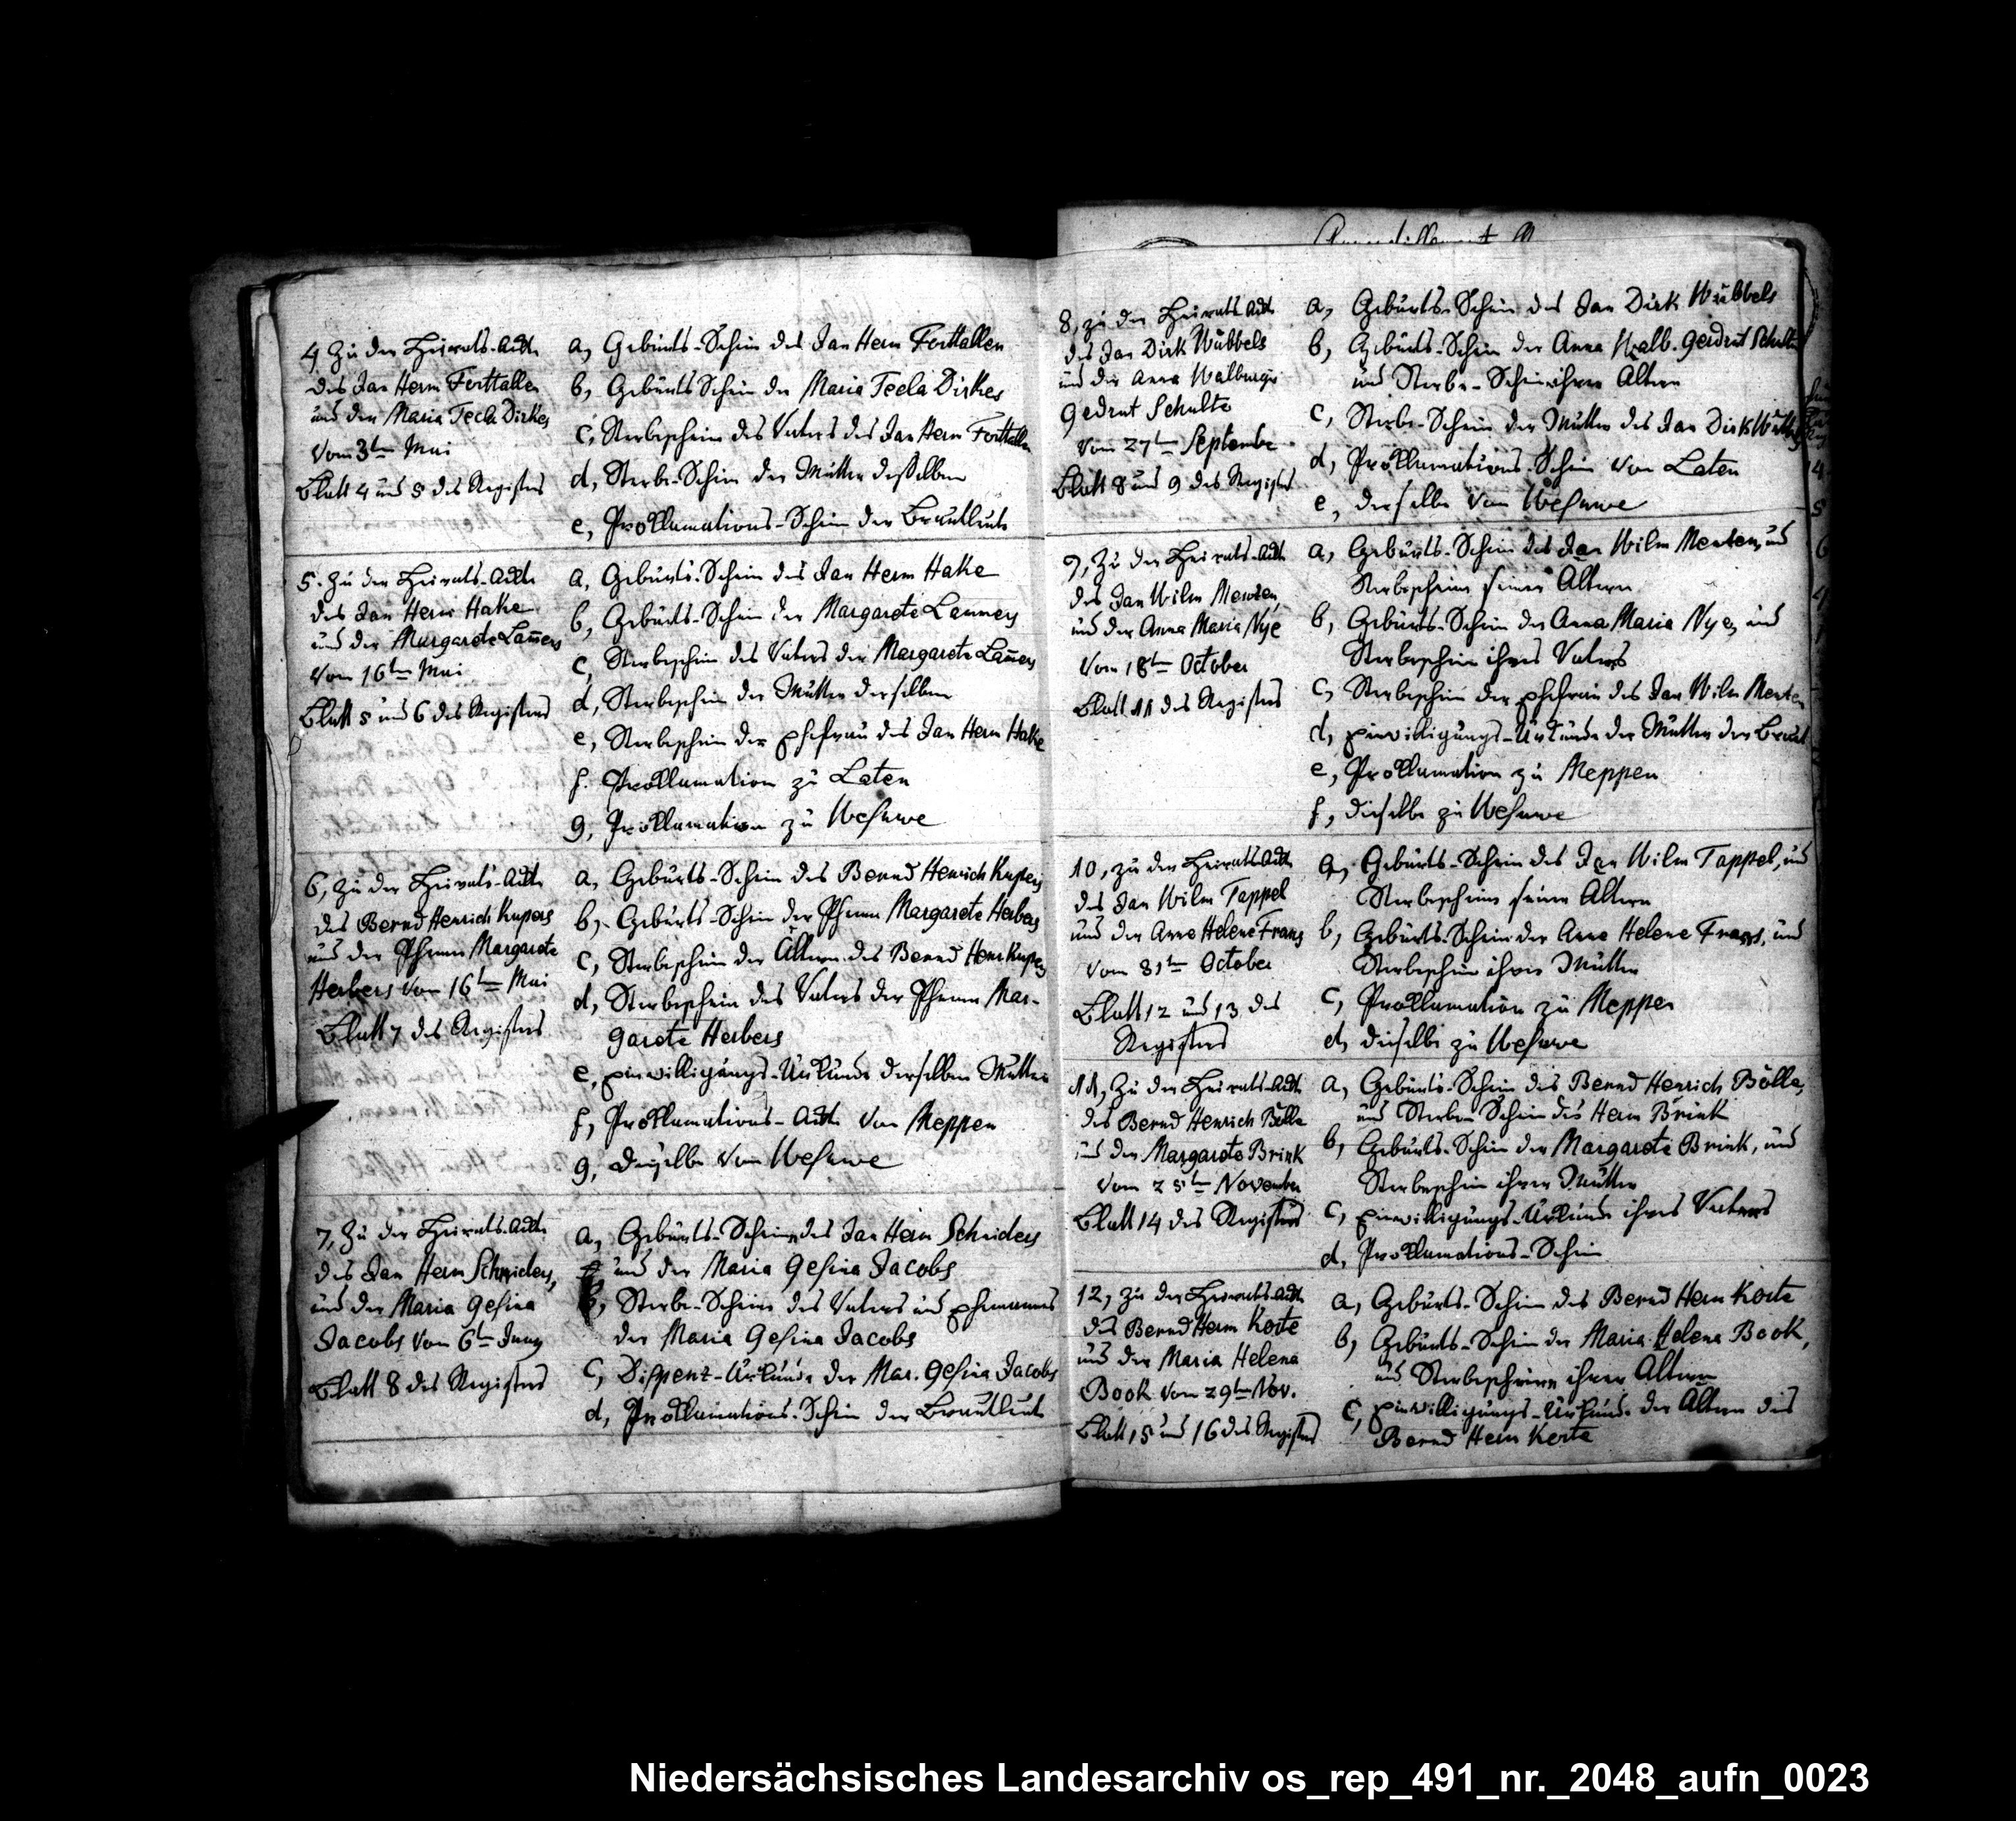 4, Zu der Heirats-Ackt
des Jan Herm Forttallen
und der Maria Tecla Dirkes
vom 3ten Mai
Blatt 4 und 5 des Registers
a, Geburts-Schein des Jan Herm Forttallen
b, Geburts Schein der Maria Tecla Dirkes
c, Sterbeschein des Vaters des Jan Herm Forttallen
d, Sterbe-Schein der Mutter desselben
e, Procklamations-Schein der Brautleute
5. Zu der Heirats-Ackt
des Jan Herm Hake
und der Margarete Lam̄ers
vom 16ten Mai
Blatt 5 und 6 des Registers
a, Geburts-Schein des Jan Herm Hake
b, Geburts-Schein der Margarete Lammers
c, Sterbeschein des Vaters der Margarete Lam̄ers
d, Sterbeschein der Mutter derselben
e, Sterbeschein der Ehefrau des Jan Herm Hake
f. Procklamation zu Laten
g, Procklamation zu Wesuwe
6, Zu der Heirats-Ackt
des Bernd Henrich Kupers
und der Phenna Margarete
Herbers vom 16ten Mai
Blatt 7 des Registers
a, Geburts-Schein des Bernd Henrich Kupers
b, Geburts-Schein der Phenna Margarete Herbers
c, Sterbeschein der Ältern des Bernd Henr Kupers
d, Sterbeschein des Vaters der Phenna Mar-
garete Herbers
e, Einwilligungs-Urkunde derselben Mutter
f, Procklamations-Ackt von Meppen
g, dieselbe von Wesuwe
7, Zu der Heirats-Ackt
des Jan Herm Schniders,
und der Maria Gesina
Jacobs vom 6ten Juny
Blatt 8 des Registers
a, Geburts-Schein des Jan Herm Schniders
und der Maria Gesina Jacobs
b, Sterbe-Schein des Vaters und Ehemannes
der Maria Gesina Jacobs
c, Dispenz-Urkunde der Mar. Gesina Jacobs
d, Procklamations-Schein der Brautleute
8, zu der Heirats Ackt
des Jan Dirk Wubbels
und der Anna Walburgis
Gedrut Schulte
vom 27ten September
Blatt 8 und 9 des Registers
a, Geburts-Schein des Jan Dirk Wubbels
b, Geburts-Schein der Anna Walb. Gerdrut Schulte
und Sterbe-Schein ihrer Altern
c, Sterbe-Schein der Mutter des Jan Dirk Wubbels
d, Procklamations-Schein von Laten
e, derselbe von Wesuwe
9, Zu der Heirats-Ackt
des Jan Wilm Menten
und der Anna Maria Nye
vom 18ten October
Blatt 11 des Registers
a, Geburts-Schein des Jan Wilm Menten, und
Sterbescheine seiner Altern
b, Geburts-Schein der Anna Maria Nye, und
Sterbeschein ihres Vaters
c, Sterbeschein der Ehefrau des Jan Wilm Menten
d, Einwilligungs-Urkunde der Mutter der Braut
e, Procklamation zu Meppen
f, dieselbe zu Wesuwe
10, zu der Heirats Ackt
des Jan Wilm Tappel
und der Anna Helene Frans
vom 31ten October
Blatt 12 und 13 des
Registers
a, Geburts-Schein des Jan Wilm Tappel, und
Sterbescheine seiner Altern
b, Geburts-Schein der Anna Helene Frans, und
Sterbeschein ihrer Mutter
c, Procklamation zu Meppen
d, dieselbe zu Wesuwe
11, Zu der Heirats-Ackt
des Bernd Henrich Bölle
und der Margarete Brink
vom 25ten November
Blatt 14 des Registers
a, Geburts-Schein des Bernd Henrich Bölle,
und Sterbe-Schein des Herm Brink
b, Geburts-Schein der Margarete Brink, und
Sterbeschein ihrer Mutter
c, Einwilligungs-Urkunde ihres Vaters
d, Procklamations-Schein
12, zu der Heirats-Ackt
des Bernd Herm Korte
und der Maria Helena
Book vom 29ten Nov.
Blatt 15 und 16 des Registers
a, Geburts-Schein des Bernd Herm Korte
b, Geburts-Schein der Maria Helena Book,
und Sterbescheine ihrer Altern
c, Einwilligungs-Urkunde der Altern des
Bernd Herm Korte
Niedersächsisches Landesarchiv os_rep_491_nr._2048_aufn_0023